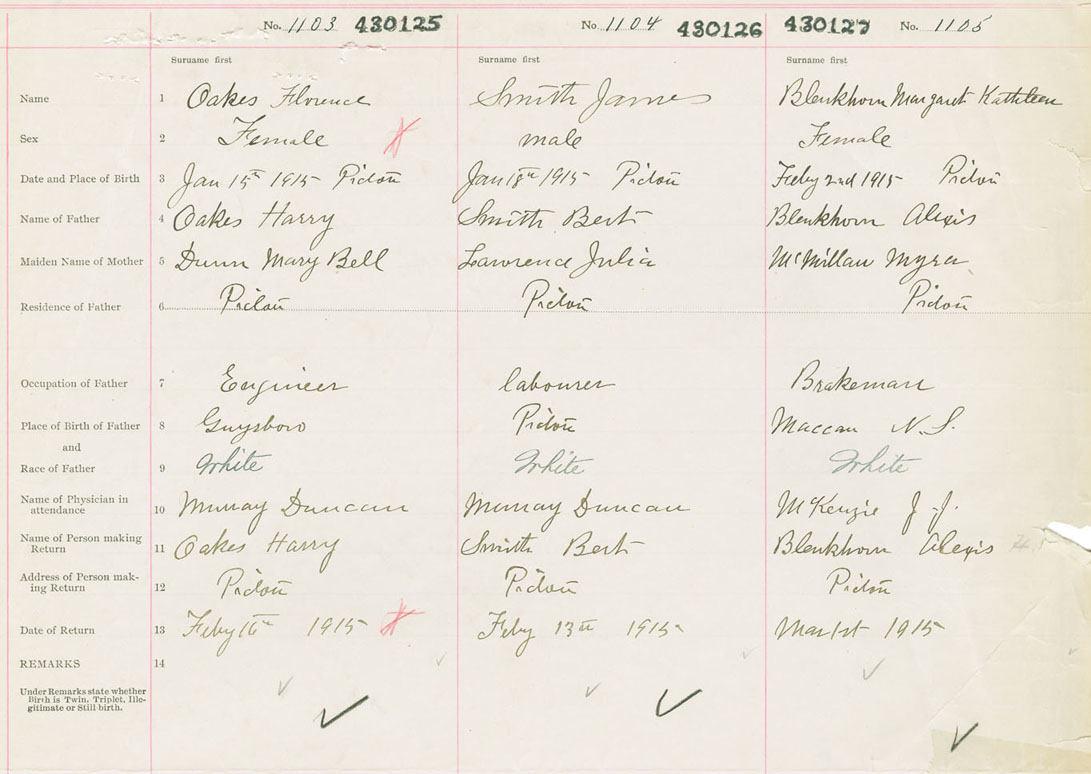 No. 1103 430125 No. 1104 430126 430127 No. 1105
Surname first Surname first Surname first
Name 1 Oakes Florence Smith James Blenkhorn Margaret Kathleen
Sex 2 Female male Female
Date and Place of Birth 3 Jan 15th 1915 Pictou Jan 18th 1915 Pictou Feby 2nd 1915 Pictou
Name of Father 4 Oakes Harry Smith Bert Blenkhorn Alexis
Maiden Name of Mother 5 Dunn Mary Bell Lawrence Julia McMillan Myra
Residence of Father 6 Pictou Pictou Pictou
Occupation of Father 7 Engineer labourer Brakeman
Place of Birth of Father 8 Guysboro Pictou Maccan N.S.
and
Race of Father 9 White White White
Name of Physician in
attendance 10 Murray Duncan Murray Duncan McKenzie J. J.
Name of Person making
Return 11 Oakes Harry Smith Bert Blenkhorn Alexis
Address of Person mak-
ing Return 12 Pictou Pictou Pictou
Date of Return 13 Feby 1915 Feby 13th 1915 Mar 1st 1915
REMARKS 14
Under Remarks state whether
Birth is Twin, Triplet, Ille-
gitimate or Still birth.